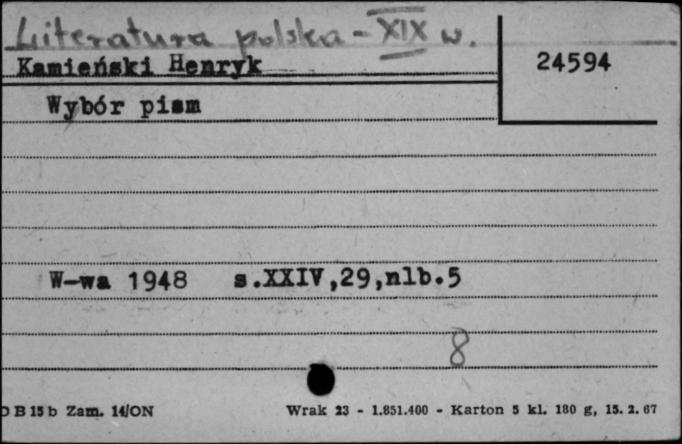 Literatura polska - XIX w.
Kamieński Henryk
24594
Wybór pism
W-wa 1948 s.XXIV,29,nlb.5
8
DB 15 b Zam. 14/ON Wrak 23 - 1.851.400 - Karton 5 kl. 180 g, 15. 2. 67